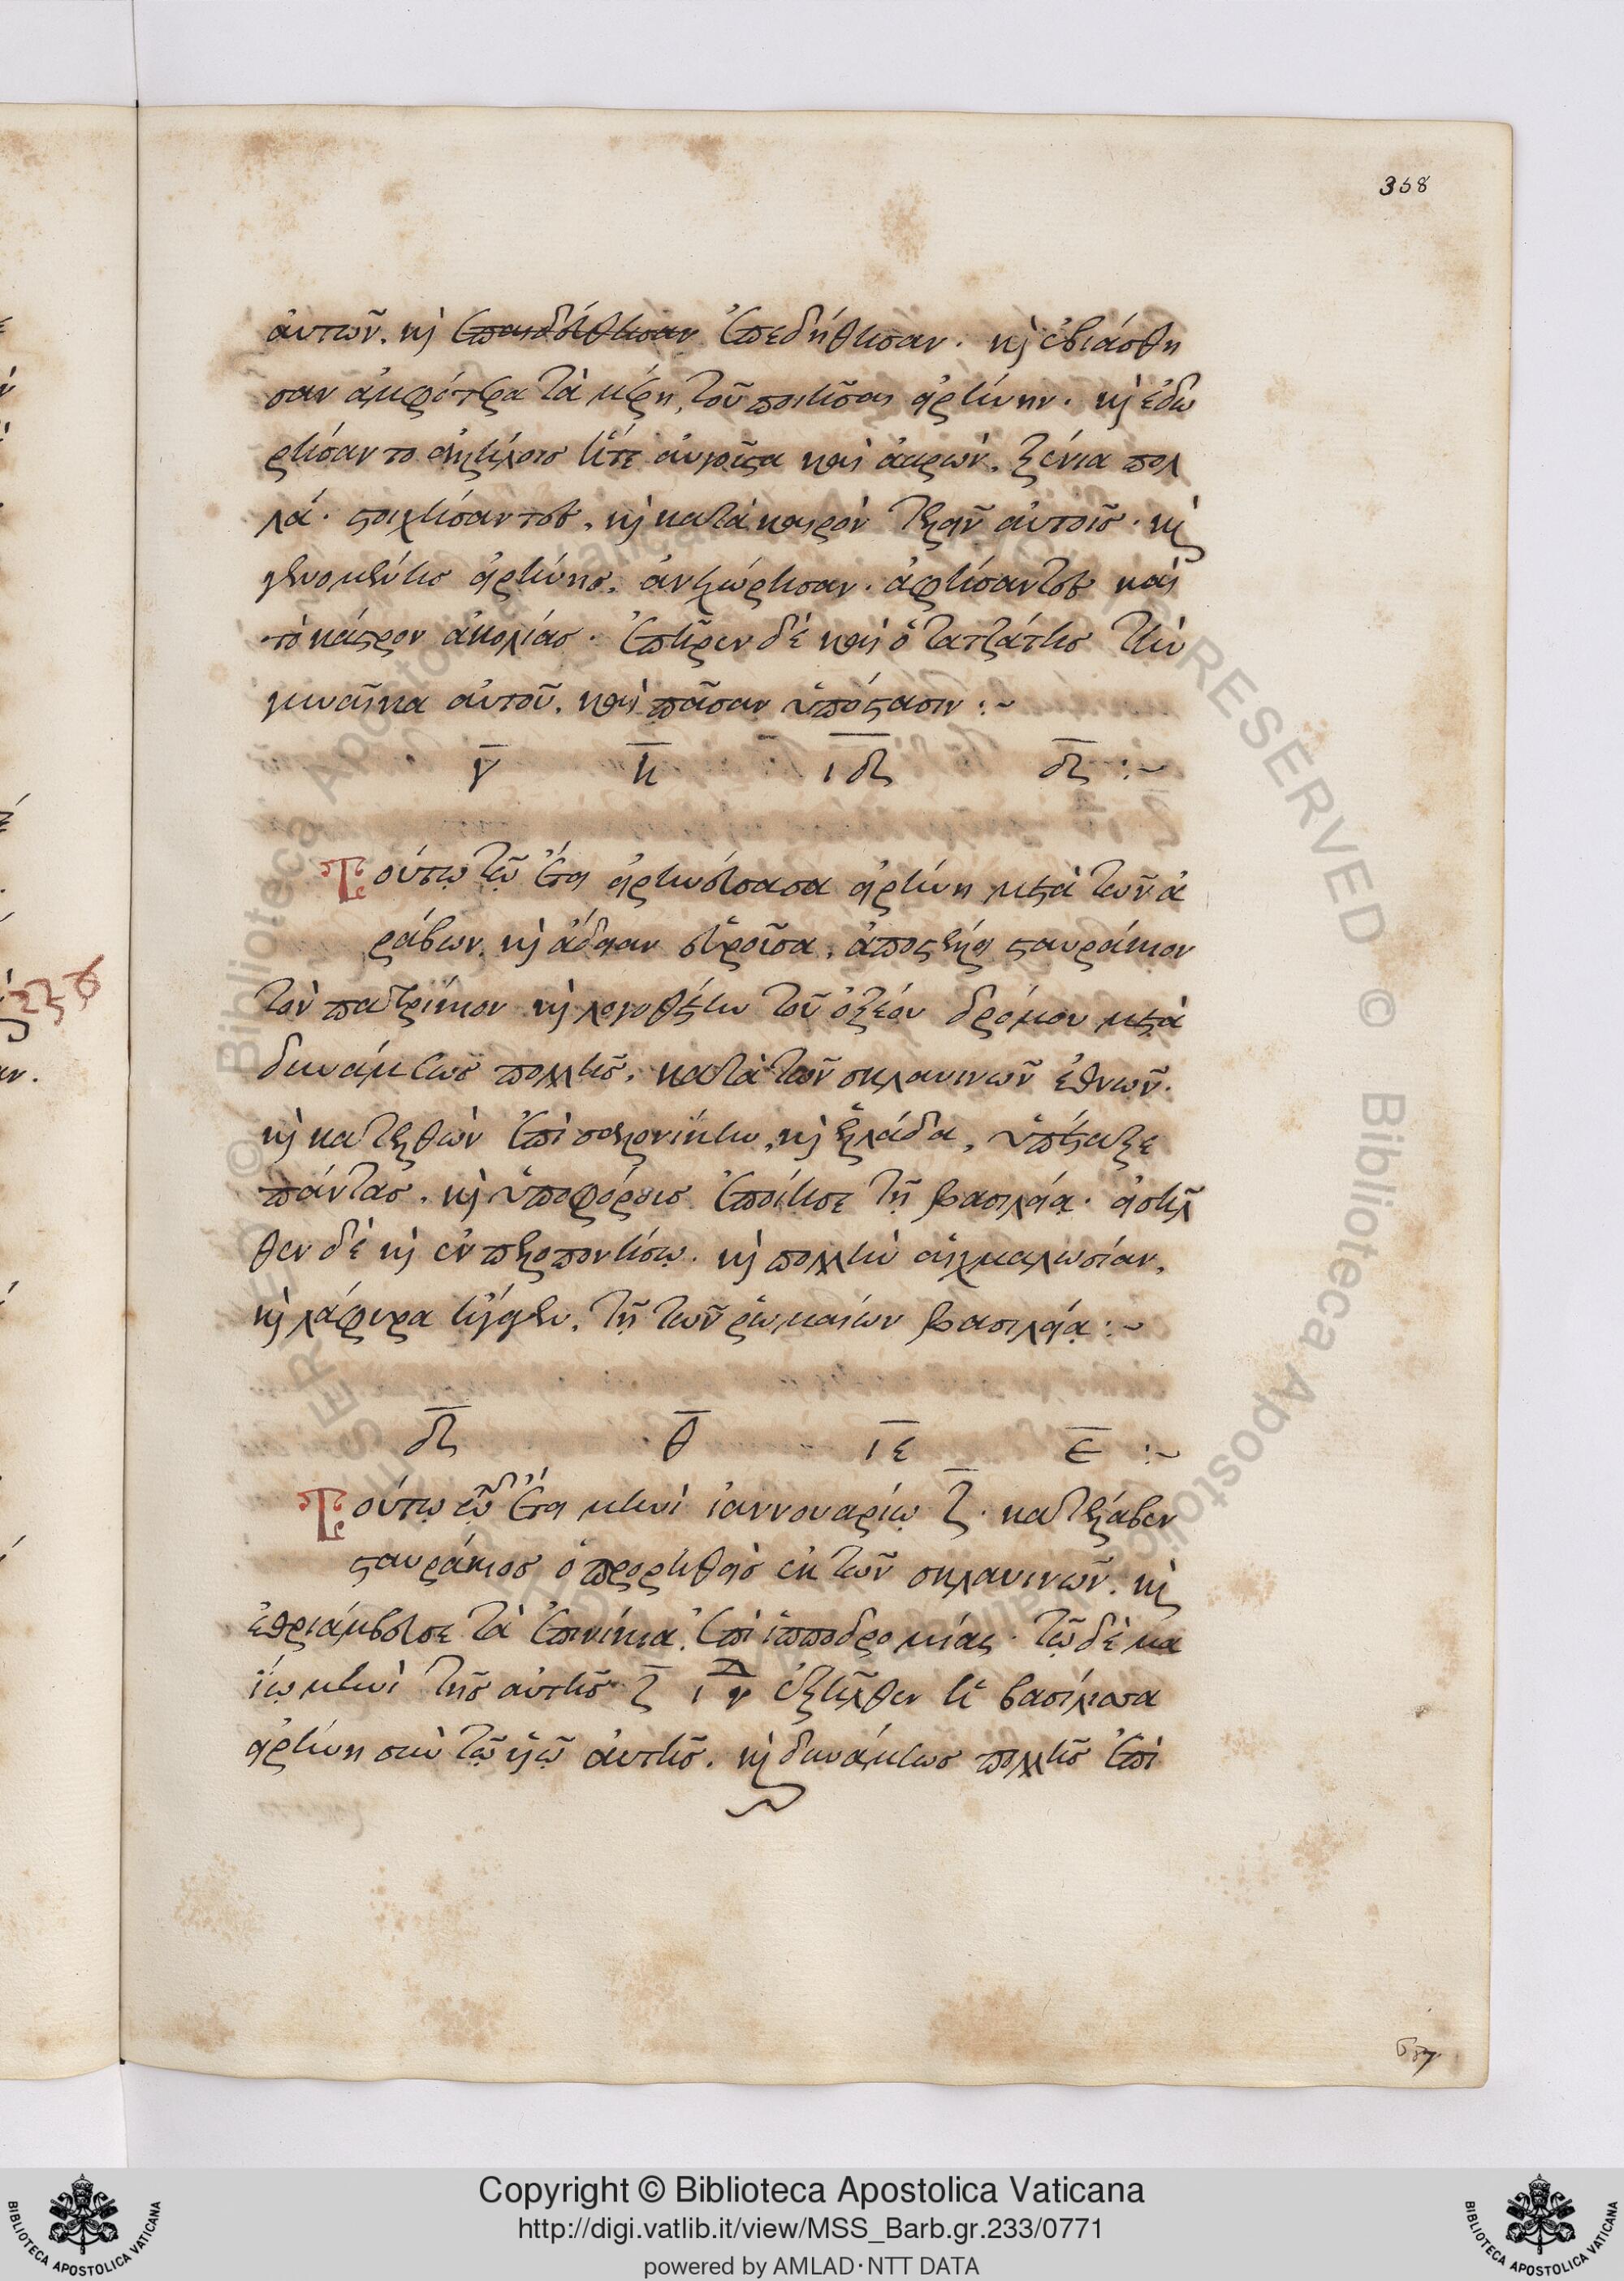 358
αὐτῶν. καὶ ἐπαιδεύθησαν ἐπεδήθησαν. καὶ ἐβιάσθη
σαν ἀμφότερα τὰ μέρη, τοῦ ποιῆσαι εἰρήνην. καὶ ἐδω
ρήσαντο ἀλλήλοις ἥτε αὐγοῦστα καὶ ἀαρών. ξένια πολ
λά. στοιχήσαντες, καὶ κατὰ καιρὸν τελεῖν αὐτοῖς. καὶ
γενομένης εἰρήνης, ἀνεχώρησαν. ἀφήσαντες καὶ
τὸ κάστρον νακολίας. ἐπῆρεν δὲ καὶ ὁ τατζάτης τὴν
γυναῖκα αὐτοῦ. καὶ πᾶσαν ὑπόστασιν :~
γ η ιδ δ :~
Τούτῳ τῷ ἔτει εἰρηνεύσασα εἰρήνη μετὰ τῶν ἀ
ράβων. καὶ ἄδειαν εὑροῦσα, ἀποστέλλει σταυράκιον
τὸν πατρίκιον καὶ λογοθέτην τοῦ ὀξέου δρόμου μετὰ
δυνάμεως πολλῆς. κατὰ τῶν σκλαυινῶν ἐθνῶν.
καὶ κατελθὼν ἐπὶ θεσσαλονίκην, καὶ ἑλλάδα, ὑπέταξε
πάντας. καὶ ὑποφόρους ἐποίησε τῇ βασιλείᾳ. εἰσῆλ
θεν δὲ καὶ ἐν πελοποννήσῳ. καὶ πολλὴν αἰχμαλωσίαν,
καὶ λάφυρα ἤγαγεν. τῇ τῶν ῥωμαίων βασιλείᾳ :~
δ θ ιε ε :~
Τούτῳ τῷ δ' ἔτει μηνὶ ἰαννουαρίῳ ζ. κατέλαβεν
σταυράκιος ὁ προρηθεὶς ἐκ τῶν σκλαυινῶν. καὶ
ἐθριάμβευσε τὰ ἐπινίκια. ἐπὶ ἱπποδρομίας. τῷ δὲ μα
ΐῳ μηνὶ τῆς αὐτῆς ζ ἰν ἐξῆλθεν ἡ βασίλισσα
εἰρήνη σὺν τῷ υἱῷ αὐτῆς. καὶ δυνάμεως πολλῆς ἐπὶ
Copyright © Biblioteca Apostolica Vaticana
http://digi.vatlib.it/view/MSS_Barb.gr.233/0771
powered by AMLAD·NTT DATA
BIBLIOTECA APOSTOLICA VATICANA
BIBLIOTECA APOSTOLICA VATICANA